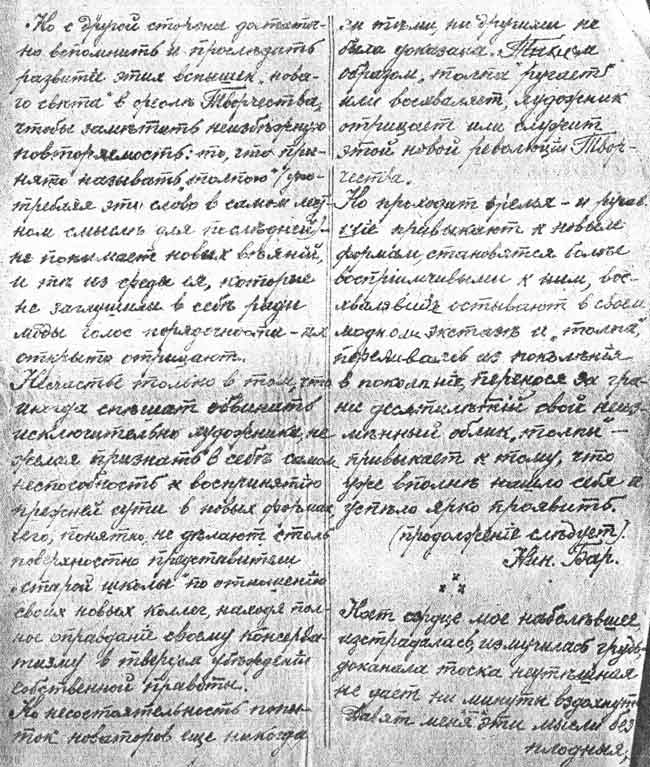 Но с другой стороны достаточ-
но вспомнить и прослѣдить
развитіе этих вспышек „ново-
го свѣта" в ореолѣ Творчества,
чтобы замѣтить неизбѣжную
повторяемость: то, что при-
нято называть „толпою" (упо-
требляя это слово в самом
ном смыслѣ для послѣдней) –
не понимает новых вѣяній,
и тѣ из среды ея, которые
не заглушили в себѣ ради
моды голос порядочности – их
открыто отрицают.
Несчастье только в том, что
иногда спѣшат обвинить
исключительно художника, не
желая признать в себѣ самом
неспособность к воспринятію
прежней сути в новых формах,
чего, понятно, не дѣлают столь
поверхностно представители
„старой школы" по отношенію
своих новых коллег, находя пол-
ное оправданіе своему консерва-
тизму в твердом убѣжденіи
собственной правоты.
Но несостоятельность попы-
ток новаторов еще никогда
ни тѣми ни другими не
была доказана. Таким
образом „толпа" ругает
или восхваляет, художник
отрицает или служит
этой новой революціи Твор-
чества.
Но проходит время – и ругав-
шіе привыкают к новым
формам, становятся болѣе
воспріимчивыми к ним, вос-
хвалявшіе остывают в своем
модном экстазѣ и „толпа",
переливаясь из поколѣнія
в поколѣніе, перенося за гра-
ни десятилѣтій свой неиз-
мѣнный облик „толпы" –
привыкает к тому, что
уже вполнѣ нашло себя и
успѣло ярко проявить.
(продолженіе слѣдует).
Нин. Бар.
х х х
Ноет сердце мое наболѣвшее
изстрадалась, измучилась грудь,
доканала тоска неутѣшная
не дает ни минуты вздохнуть
Давят меня эти мысли без
плодныя,